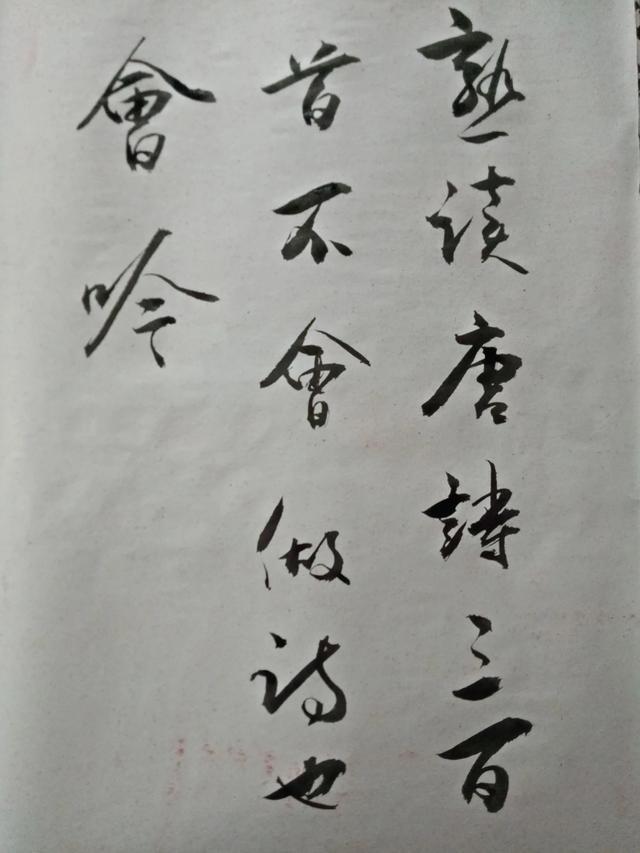 熟读唐詩三百
首不會做诗也
會吟